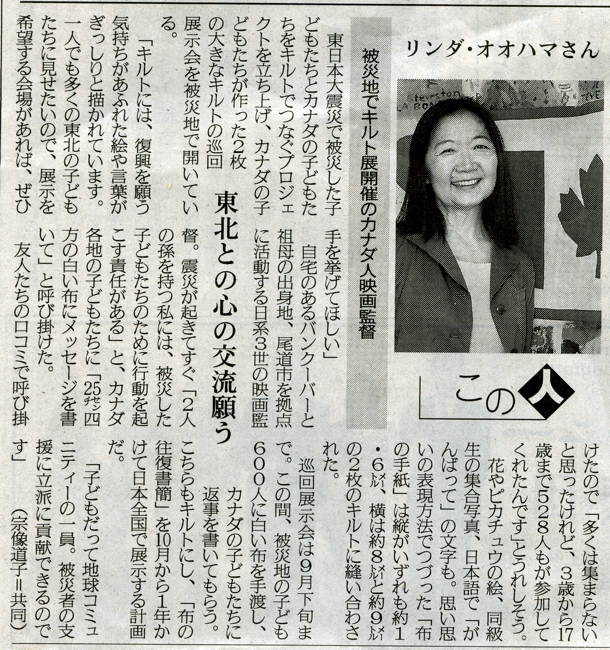 リンダ・オオハマさん
被災地でキルト展開催のカナダ人映画監督
この人
東北との心の交流願う
東日本大震災で被災した子
どもたちとカナダの子どもた
ちをキルトでつなぐプロジェ
クトを立ち上げ、カナダの子
どもたちが作った２枚
の大きなキルトの巡回
展示会を被災地で開いてい
る。
「キルトには、復興を願う
気持ちがあふれた絵や言葉が
ぎっしりと描かれています。
一人でも多くの東北の子ども
たちに見せたいので、展示を
希望する会場があれば、ぜひ
手を挙げてほしい」
自宅のあるバンクーバーと
祖母の出身地、尾道市を拠点
に活動する日系３世の映画監
督。震災が起きてすぐ「２人
の孫を持つ私には、被災した
子どもたちのために行動を起
こす責任がある」と、カナダ
各地の子どもたちに「25㌢四
方の白い布にメッセージを書
いて」と呼び掛けた。
友人たちの口コミで呼び掛
けたので「多くは集まらない
と思ったけれど、３歳から17
歳まで５２８人もが参加して
くれたんです」とうれしそう。
花やピカチュウの絵、同級
生の集合写真、日本語で「が
んばって」の文字も。思い思
いの表現方法でつづった「布
の手紙」は縦がいずれも約１
・６㍍、横は約８㍍と約９㍍
の２枚のキルトに縫い合わさ
れた。
巡回展示会は９月下旬ま
で。この間、被災地の子ども
６００人に白い布を手渡し、
カナダの子どもたちに
返事を書いてもらう。
こちらもキルトにし、「布の
往復書簡」を10月から１年か
けて日本全国で展示する計画
だ。
「子どもだって地球コミュ
ニティーの一員。被災者の支
援に立派に貢献できるので
す」　（宗像道子＝共同）